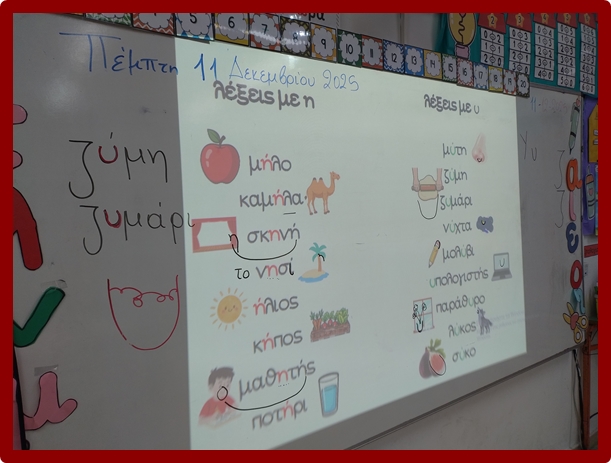 Πέμπτη 11 Δεκεμβρίου 2025
λέξεις με η
μήλο
καμήλα
η σκηνή
το νησί
ήλιος
κήπος
μαθητής
ποτήρι
λέξεις με υ
μύτη
ζύμη
ζυμάρι
νύχτα
μολύβι
υπολογιστής
παράθυρο
λύκος
σύκο
ζύμη
ζυμάρι
Υυ
5
7
8
9
10
11
12
13
14
15
16
17
18
19
20